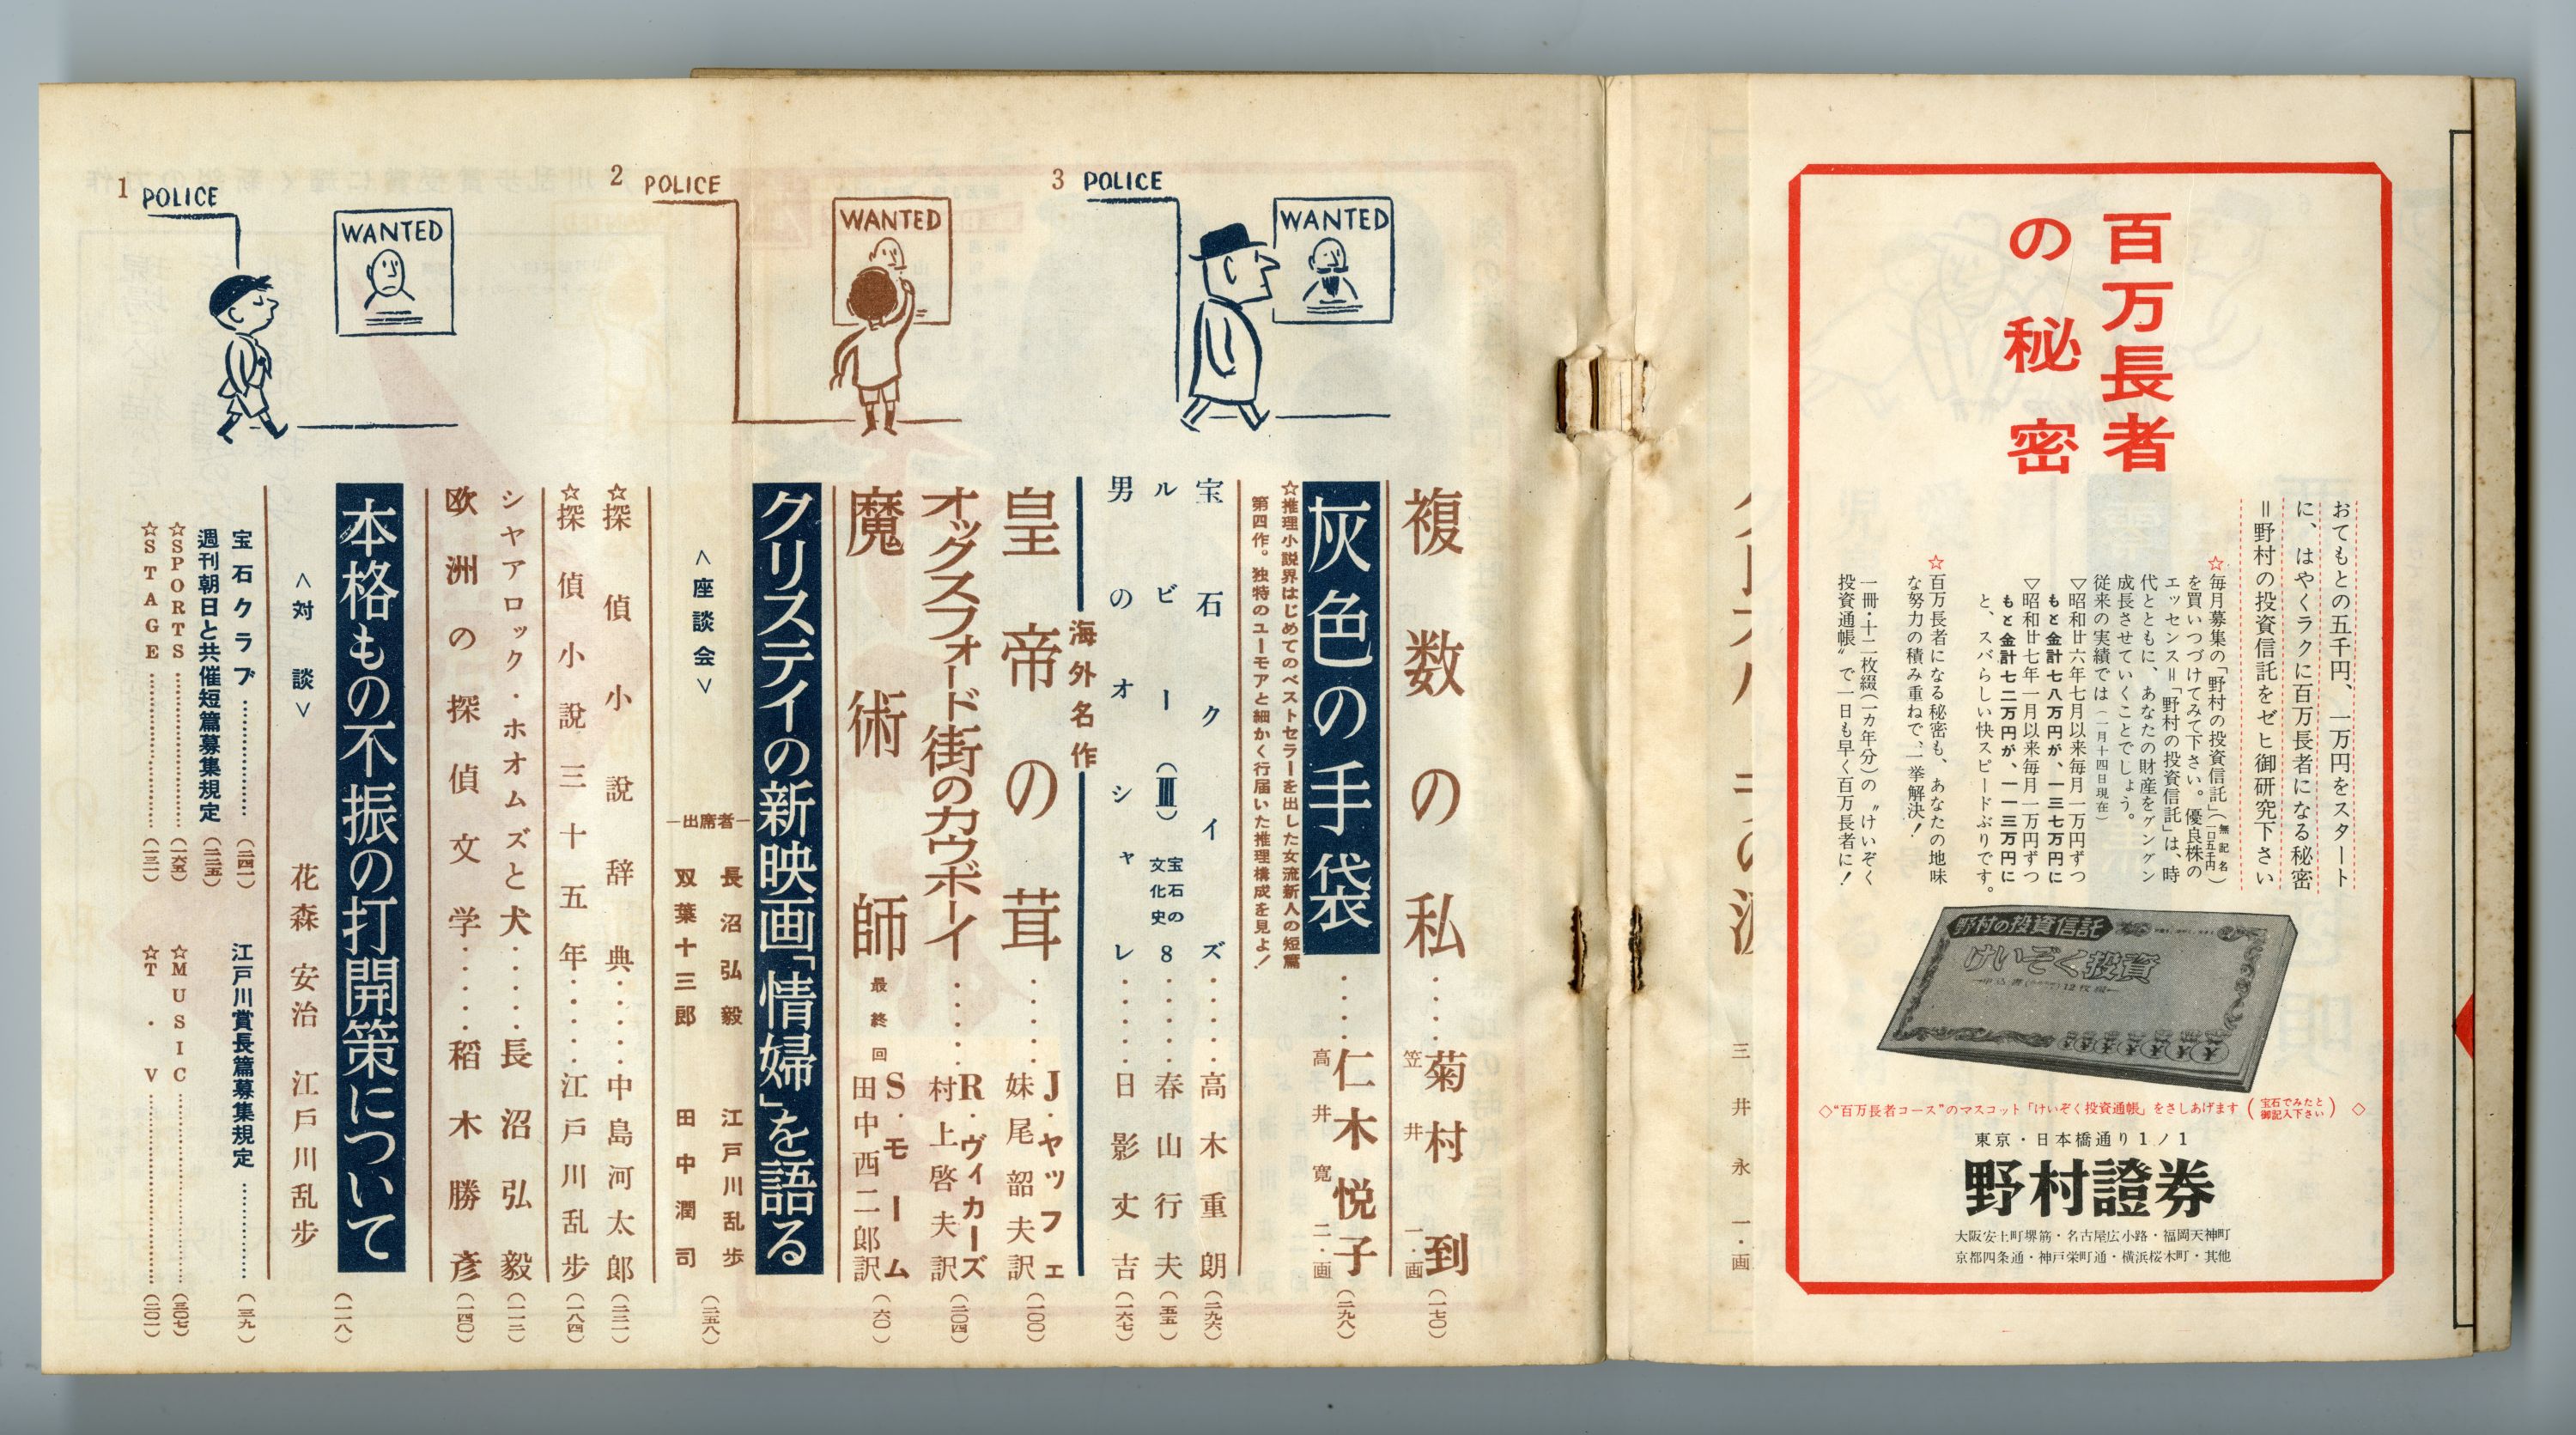 百万長者
の秘密
おてもとの五千円、一万円をスタート
に、はやくラクに百万長者になる秘密
＝野村の投資信託をゼヒ御研究下さい
☆毎月募集の「野村の投資信託」（無記名一口五千円）
を買いつづけてみて下さい。優良株の
エッセンス＝「野村の投資信託」は、時
代とともに、あなたの財産をグングン
成長させていくことでしょう。
従来の実績では（一月十四日現在）
▽昭和廿六年七月以来毎月一万円ずつ
もと金計七八万円が、一三七万円に
▽昭和廿七年一月以来毎月一万円ずつ
もと金計七二万円が、一一三万円に
と、スバらしい快スピードぶりです。
☆百万長者になる秘密も、あなたの地味
な努力の積み重ねで、一挙解決！
一冊・十二枚綴（一カ年分）の〝けいぞく
投資通帳〟で一日も早く百万長者に！
野村の投資信託
けいぞく投資
◇“百万長者コース”のマスコット「けいぞく投資通帳」をさしあげます（宝石でみたと御記入下さい）◇
東京・日本橋通り1ノ1
野村證券
大阪安土町堺筋・名古屋広小路・福岡天神町
京都四条通・神戸栄町通・横浜桜木町・其他
三井永一・画
3 POLICE
WANTED
2 POLICE
WANTED
1 POLICE
WANTED
複数の私……菊村到（一七〇）
笠井一・画
灰色の手袋……仁木悦子（二九八）
高井寛二・画
☆推理小説界はじめてのベストセラーを出した女流新人の短篇
第四作。独特のユーモアと細かく行届いた推理構成を見よ！
宝石クイズ……高木重朗（二九六）
ルビー（Ⅲ）宝石の文化史8……春山行夫（五五）
男のオシャレ……日影丈吉（一六七）
海外名作
皇帝の茸……J・ヤッフェ 妹尾韶夫訳（一〇〇）
オックスフォード街のカウボーイ……R・ヴィカーズ 村上啓夫訳（二〇四）
魔術師 最終回 S・モーム 田中西二郎訳（六〇）
クリスティの新映画「情婦」を語る
＜座談会＞
―出席者―
長沼弘毅 江戸川乱歩
双葉十三郎 田中潤司
（二五八）
☆探偵小說辞典……中島河太郎（二三一）
☆探偵小說三十五年……江戸川乱歩（一八四）
シヤアロック・ホオムズと犬……長沼弘毅（一一二）
欧洲の探偵文学……稲木勝彦（一四〇）
本格もの不振の打開策について（一一八）
＜対談＞ 花森安治 江戸川乱歩
宝石クラブ……（二四一）
江戸川賞長篇募集規定……（三九）
週刊朝日と共催短篇募集規定（二三五）
☆SPORTS……（一六五）
☆MUSIC……（三〇七）
☆STAGE……（一三一）
☆T・V……（二〇一）